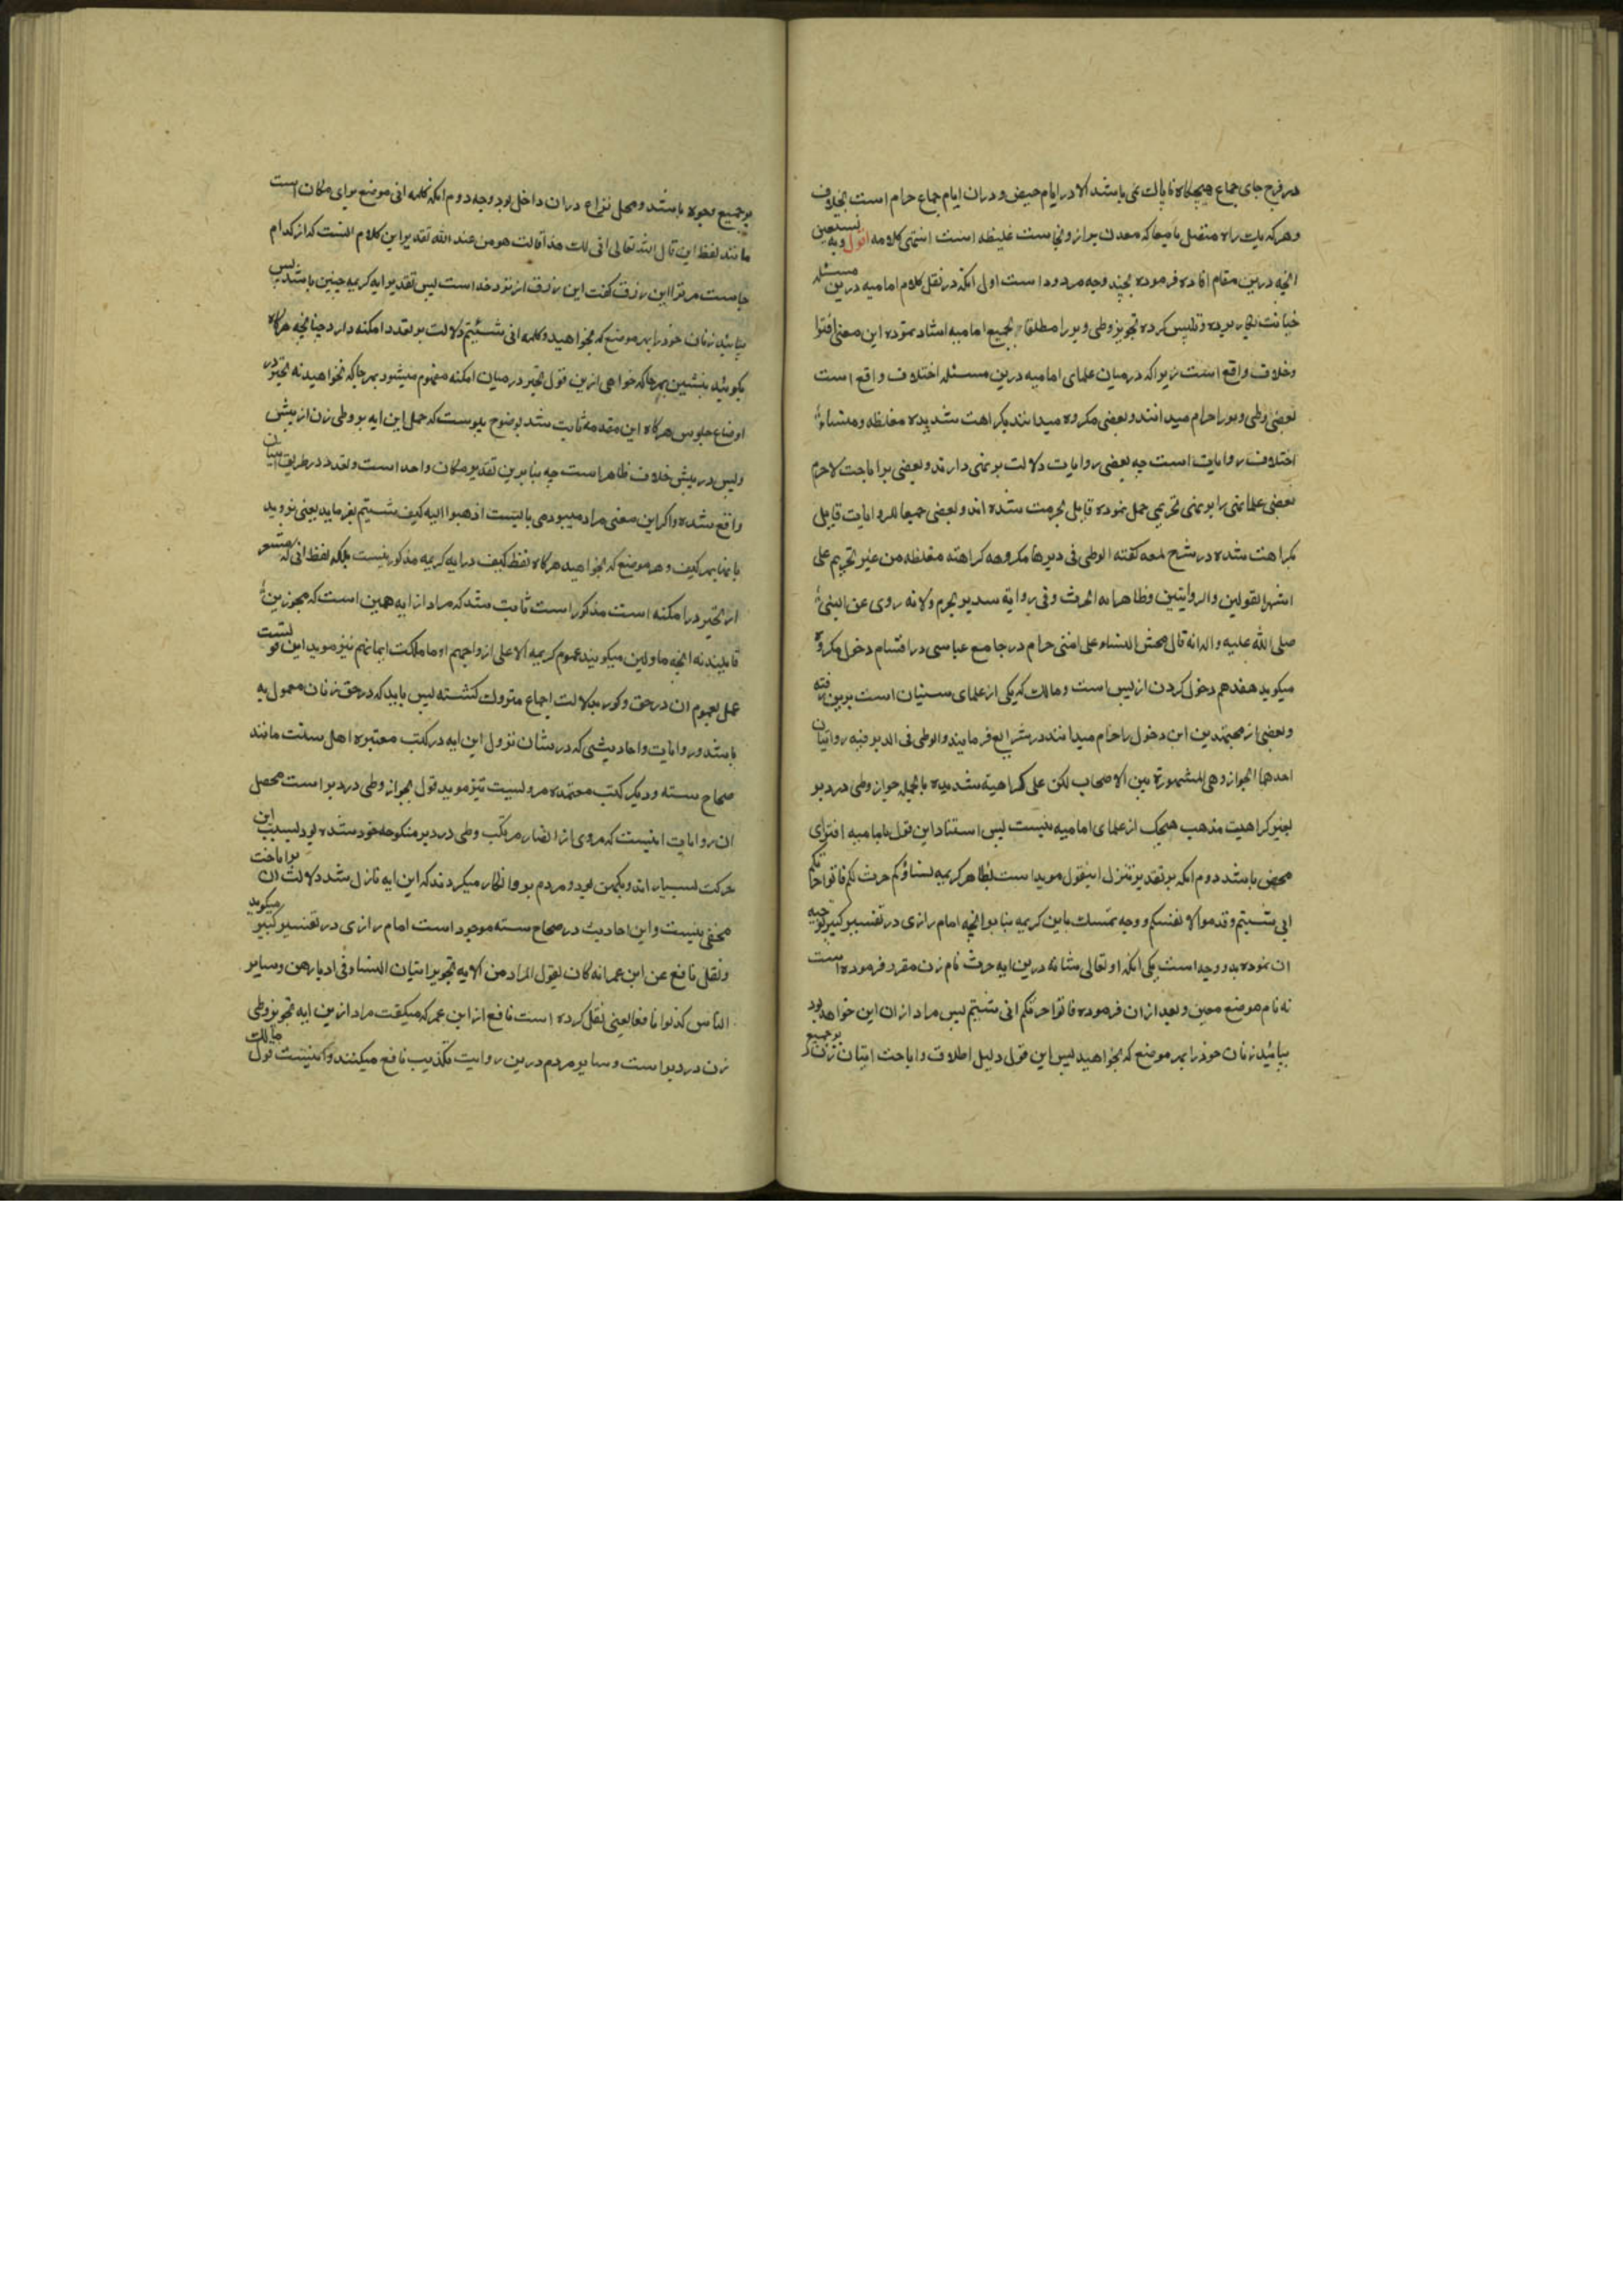 در فرج جای جماع هیچکاه ناپاک نمی باشد الا در ایام حیض و دران ایام جماع حرام است بخلاف
و هر که یک راه متصل بامعا که معدن براز و نجاست غلیظه است انتهی کلامه اقول و به نستعین
انچه درین مقام افاده فرموده بچند وجه مردود است اول انکه در نقل کلام امامیه درین مسئله
خیانت بکار برده و تلبیس کرده تجویز وطی دبر را مطلقا بجمیع امامیه اسناد نموده این معنی افترا
و خلاف واقع است زیرا که در میان علمای امامیه درین مسئله اختلاف واقع است
بعضی وطی دبر را حرام میدانند و بعضی مکروه میدانند بکراهت شدیده مغلظه و منشاء
اختلاف روایات است چه بعضی روایات دلالت بر نهی دارند و بعضی بر اباحت لاجرم
بعضی علما نهی را بر نهی تحریمی حمل نموده قایل بحرمت شده اند و بعضی جمیعا للروایات قایل
بکراهت شده در شرح لمعه کفته الوطی فی دبرها مکروهه کراهته مغلظه من غیر تحریم علی
اشهر القولین والروایتین وظاهر ایه الحرث وفی روایة سدیر یحرم ولانه روی عن النبی
صلی الله علیه واله انه قال محش النساء علی امتی حرام در جامع عباسی در اقسام دخول مکروه
میکوید هفدهم دخول کردن از پس است و مالک که یکی از علمای سنیان است برین رفته
و بعضی از مجتهدین این دخول را حرام میدانند در شرایع فرمایند والوطی فی الدبر فیه روایتان
احدهما الجواز وهی المشهورة بین الاصحاب لکن علی کراهیة شدیده بالجمله جواز وطی در دبر
بغیر کراهیت مذهب هیچک از علمای امامیه نیست پس استناد این قول بامامیه افترای
محض باشد دوم انکه بر تقدیر تنزل اینقول موید است بظاهر کریمه نساؤکم حرث لکم فاتوا حرثکم
انی شئتم وقدموا لانفسکم و وجه تمسک باین کریمه بنا بر انچه امام رازی در تفسیر کبیر توجیه
ان نموده بدو وجه است یکی انکه او تعالی شانه درین ایه حرث نام زن مقرر فرموده است
نه نام موضع معین و بعد ازان فرموده فاتوا حرثکم انی شئتم پس مراد ازان این خواهد بود
بیائید زنان خود را بهر موضع که بخواهید پس این قول دلیل اطلاق و اباحت اتیان زنان بر جمیع
بر جمیع وجوه باشد و محل نزاع دران داخل بود وجه دوم انکه کلمه انی موضع برای مکان است
مانند لفظ این قال الله تعالی انی لک هذا قالت هو من عند الله تقدیر این کلام اینست که از کدام
جاست مر ترا این رزق کفت این رزق از نزد خداست پس تقدیر ایه کریمه چنین باشد پس
بیائید زنان خود را بهر موضع که بخواهید و کلمه انی شئتم دلالت بر تعدد امکنه دارد چنانچه هرکاه
بکوئید بنشین بهر جا که خواهی ازین قول تخیر در میان امکنه مفهوم میشود بهر جا که بخواهید نه تخیر در
اوضاع جلوس هرکاه این مقدمه ثابت شد بوضوح پیوست که حمل این ایه بر وطی زن از پیش
و پس در پیش خلاف ظاهر است چه بنا برین تقدیر مکان واحد است و تعدد در طریق اتیان
واقع شده و اکر این معنی مراد میبود می بایست اذهبوا الیه کیف شئتم بفرماید یعنی نزد وید
با نها بهر کیف و هر موضع که بخواهید هرکاه لفظ کیف در ایه کریمه مذکور نیست بلکه لفظ انی که مشعر
از تخیر در امکنه است مذکور است ثابت شد که مراد از ایه همین است که مجوزین
قایلند نه انچه ماولین میکویند عموم کریمه الا علی ازواجهم او ما ملکت ایمانهم نیز موید این قولست
عمل بعموم ان در حق ذکور بدلالت اجماع متروک کشته پس باید که در حق زنان معمول به
باشد و روایات و احادیثی که در شان نزول این ایه در کتب معتبره اهل سنت مانند
صحاح سته و دیکر کتب معتمده مرویست نیز موید قول بجواز وطی در دبر است محصل
ان روایات اینست که مردی از انصار مرتکب وطی در دبر منکوحه خود شده بود بسبب این
حرکت بسیار اندوهکین بود و مردم برو انکار میکردند که این ایه نازل شد دلالت ان بر اباحت
مخفی نیست و این احادیث در صحاح سته موجود است امام رازی در تفسیر کبیر میکوید
ونقل نافع عن ابن عمر انه کان یقول المراد من الایه تجویز اتیان النساء فی ادبارهن وسایر
الناس کذبوا نافعا یعنی نقل کرده است نافع از ابن عمر که میکفت مراد ازین ایه تجویز وطی
زن در دبر است و سایر مردم درین روایت تکذیب نافع میکنند و اینست قول مالک